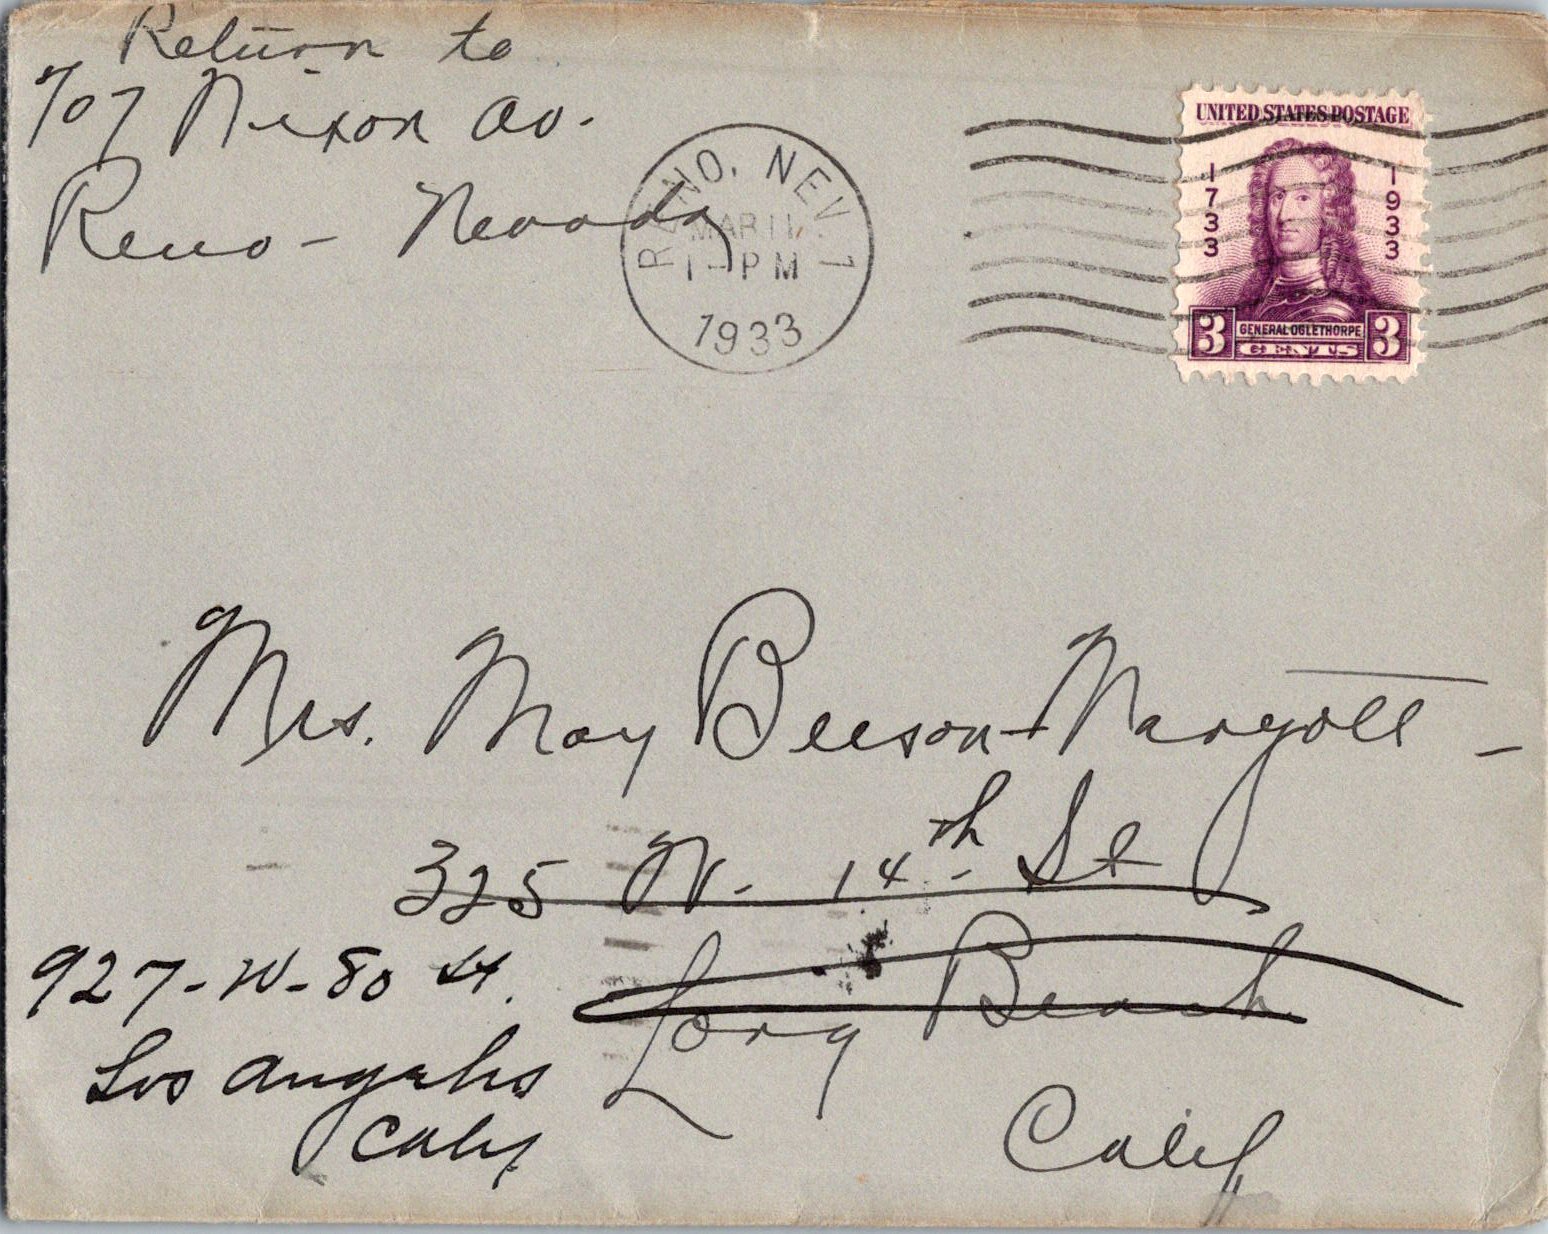 Return to
707 Nixon Av.
Reno - Nevada
RENO, NEV. 1
MAR 11
1 - PM
1933
UNITED STATES POSTAGE
1733
1933
3 GENERAL OGLETHORPE 3
CENTS
Mrs. May Beeson-Margott -
325 W. 14th St
Long Beach
Calif
927-W-80 St.
Los Angeles
Calif